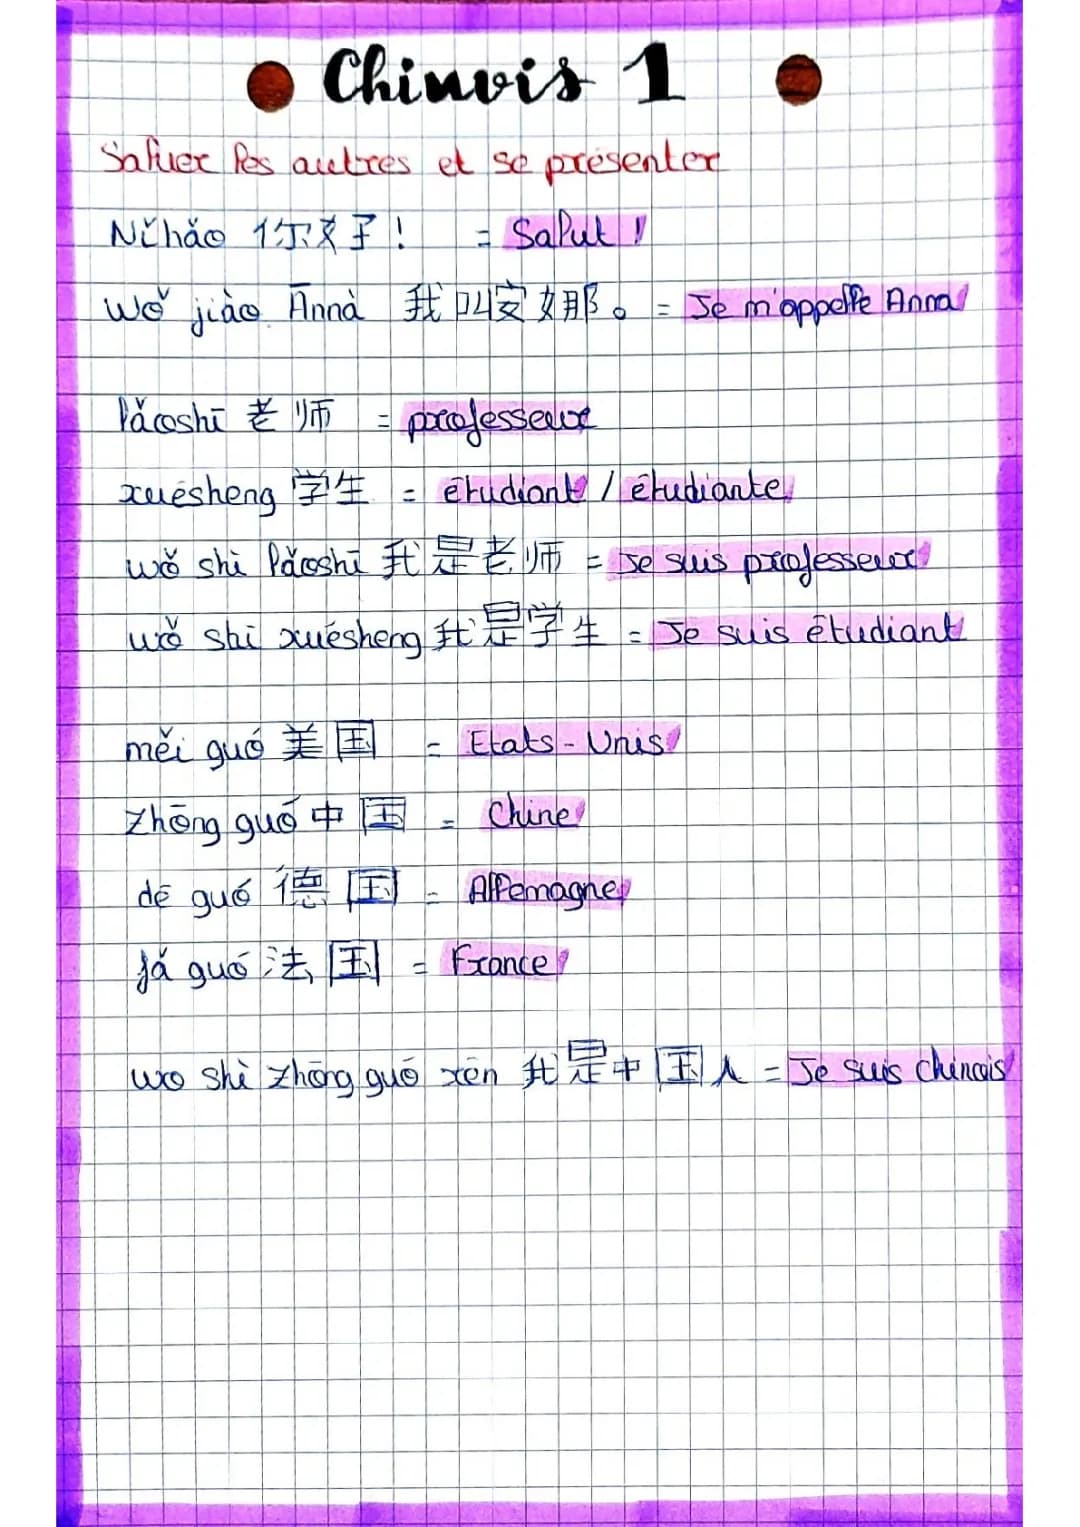 Chinois 1
Saluer les autres et se présenter
Nǐhǎo 你好! = Salut !
Wǒ jiào Ānnà 我叫安娜。 = Je m'appelle Anna
lǎoshī 老师 = professeur
xuésheng 学生 = étudiant / étudiante
wǒ shì lǎoshī 我是老师 = Je suis professeur
wǒ shì xuésheng 我是学生 = Je suis étudiant
měi guó 美国 = Etats-Unis
Zhōng guó 中国 = Chine
dé guó 德国 = Allemagne
fá guó 法国 = France
wo shì zhōng guó rén 我是中国人 = Je suis chinois